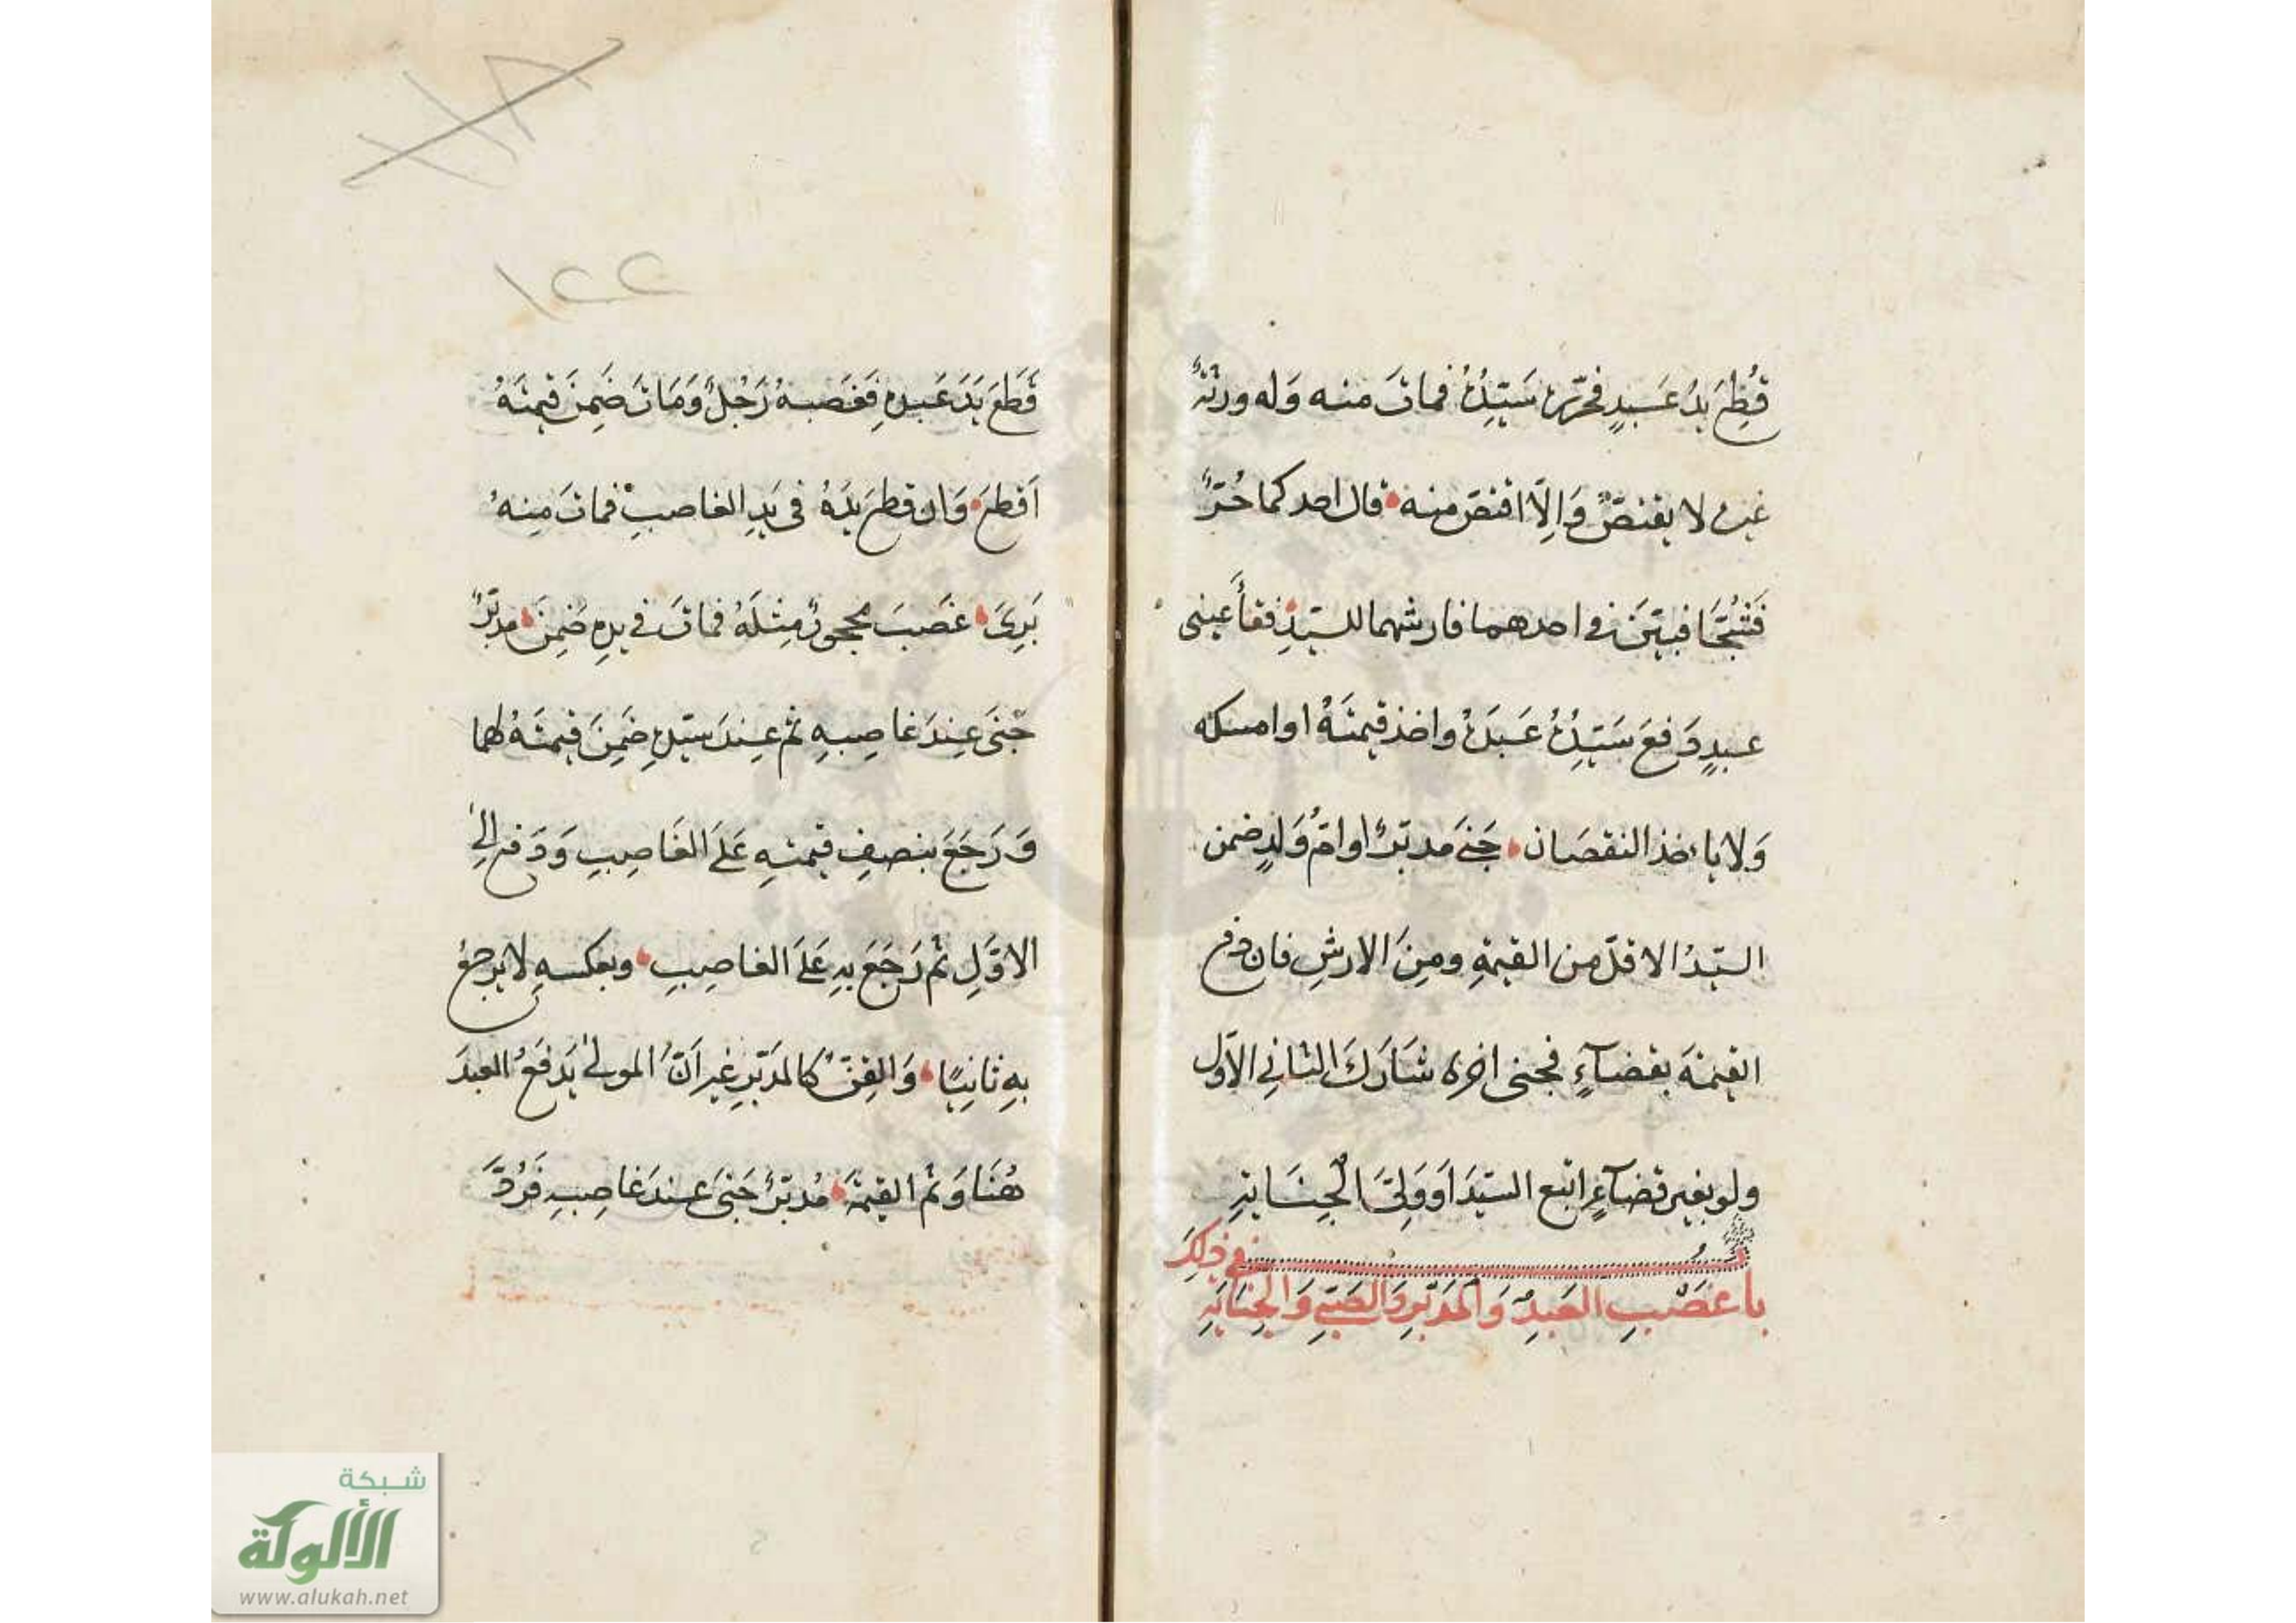 قُطِعَ يَدُ عَبدٍ فحَرّره سَيّدُهُ فمات منه وَله ورثةٌ
غيره لا يقتصّ وَاِلّا اقتصّ منه قال احدكما حُرٌّ
فَشُجَّا فبيّنَ في احدهما فارشهما للسيّدِ فقأ عيني
عبدٍ دَفعَ سَيّدُهُ عَبدَهُ واخذ قيمَتَهُ او امسكه
وَلا ياخذ النقصَان جَنىَ مدبّرٌ او امُّ وَلدٍ ضمن
السيّدُ الاقلّ من القيمةِ ومِنَ الارشِ فان دفع
القيمَةَ بقضآءٍ فجنى اخرى شَارَكَ الثاني الاوّل
ولو بغير قضآءٍ اتبع السيّدَ اَو وَلِيَّ الجِنَايةِ
باب غصْبِ العَبدِ وَالمدَبّرِ وَالصَبّيِ وَالجِنَايَةِ في ذلِكَ
١٢٢
قَطعَ يَدَ عَبدِهِ فَغَصَبهُ رَجُلٌ وَمَاتَ ضَمِنَ قيمتَهُ
اَقطعَ وَان قطعَ يَدَهُ في يَدِ الغاصبِ فماتَ مِنهُ
بَرِئَ غصَبَ محجورٌ مِثلَهُ فماتَ في يدِهِ ضَمِنَ مدبّرٌ
جَنىَ عِندَ غاصِبِهِ ثم عِندَ سَيّدِهِ ضَمِنَ قيمتَهُ لهما
وَرَجَعَ بنصفِ قيمتهِ عَلىَ الغَاصِبِ وَدَفع الىٰ
الاوّلِ ثم رَجَعَ بهِ عَلىَ الغاصِبِ وبعكسهِ لا يرجعُ
بهِ ثانِيًا وَالقِنُّ كالمدَبّرِ غير اَنّ المولىٰ يَدفَعُ العبدَ
هُنَا وَثم القيمَةَ مُدبّرٌ جَنىَ عندَ غاصِبهِ فَرُدَّ
شبكة
الألوكة
www.alukah.net